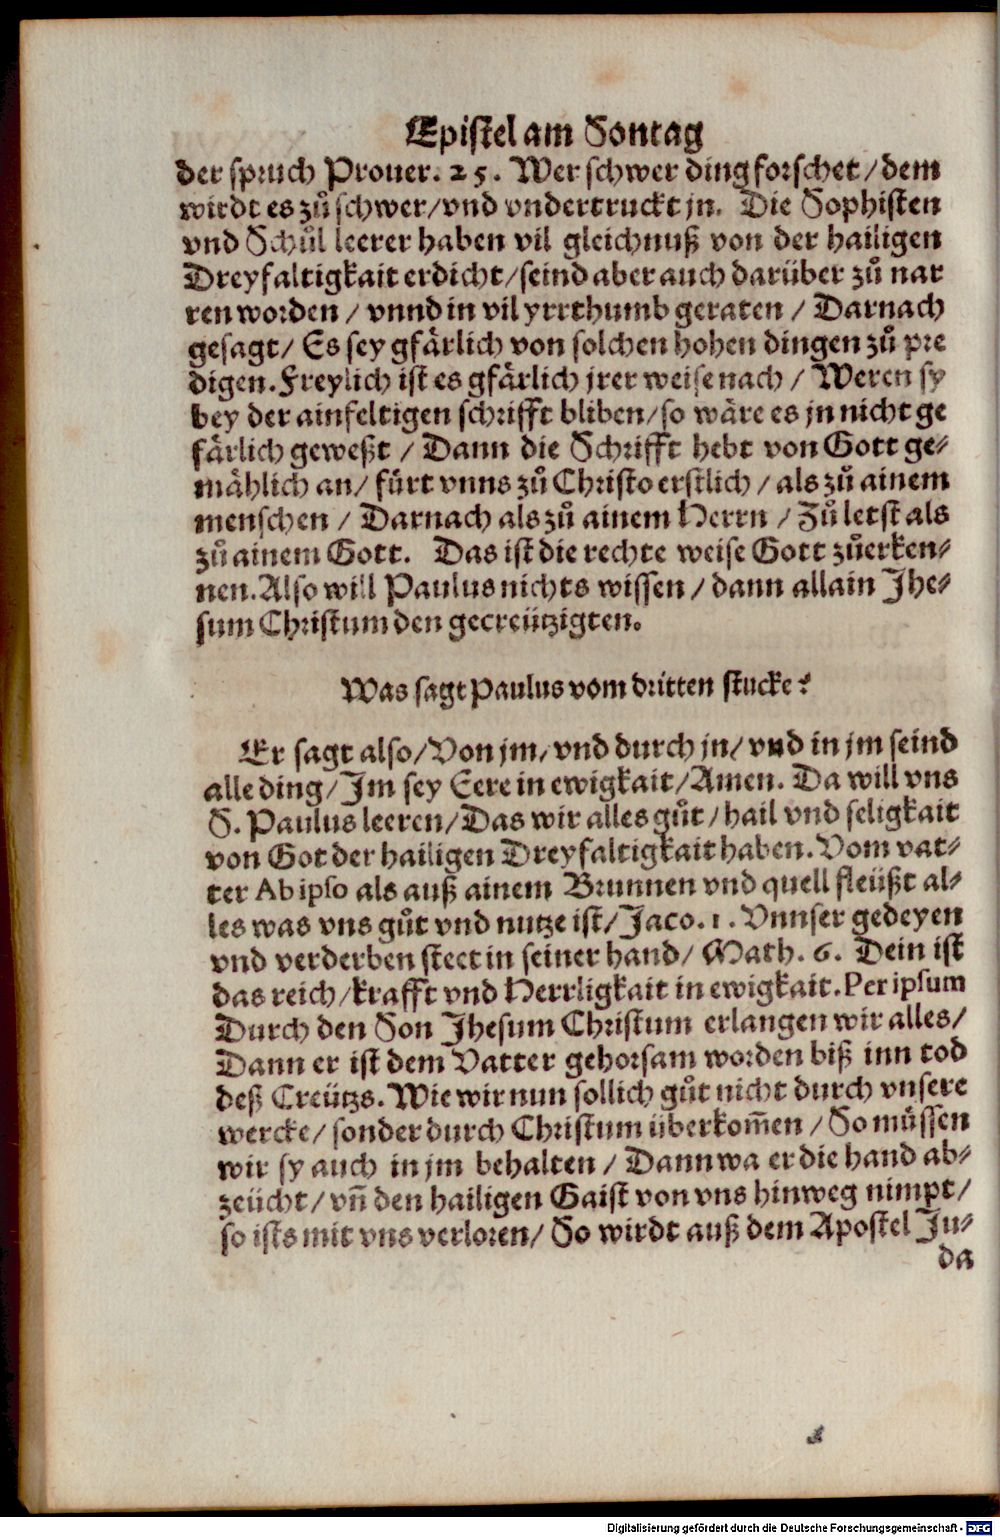 Epistel am Sontag
der spruch Prouer. 25. Wer schwer ding forschet / dem
wirdt es zů schwer / vnd vndertruckt jn. Die Sophisten
vnd Schůl leerer haben vil gleichnuß von der hailigen
Dreyfaltigkait erdicht / seind aber auch darüber zů nar
ren worden / vnnd in vil yrrthumb geraten / Darnach
gesagt / Es sey gfärlich von solchen hohen dingen zů pre
digen. Freylich ist es gfärlich jrer weise nach / Weren sy
bey der ainfeltigen schrifft bliben / so wäre es jn nicht ge
färlich geweßt / Dann die Schrifft hebt von Gott ge-
mählich an / fürt vnns zů Christo erstlich / als zů ainem
menschen / Darnach als zů ainem Herrn / Zů letst als
zů ainem Gott. Das ist die rechte weise Gott zůerken-
nen. Also will Paulus nichts wissen / dann allain Jhe-
sum Christum den gecreützigten.
Was sagt Paulus vom dritten stucke?
Er sagt also / Von jm / vnd durch jn / vnd in jm seind
alle ding / Jm sey Eere in ewigkait / Amen. Da will vns
S. Paulus leeren / Das wir alles gůt / hail vnd seligkait
von Got der hailigen Dreyfaltigkait haben. Vom vat-
ter Ab ipso als auß ainem Brunnen vnd quell fleüßt al-
les was vns gůt vnd nutze ist / Jaco. 1. Vnnser gedeyen
vnd verderben steet in seiner hand / Math. 6. Dein ist
das reich / krafft vnd Herrligkait in ewigkait. Per ipsum
Durch den Son Jhesum Christum erlangen wir alles /
Dann er ist dem Vatter gehorsam worden biß inn tod
deß Creützs. Wie wir nun sollich gůt nicht durch vnsere
wercke / sonder durch Christum überkom̃en / So müssen
wir sy auch in jm behalten / Dann wa er die hand ab-
zeücht / vñ den hailigen Gaist von vns hinweg nimpt /
so ists mit vns verloren / So wirdt auß dem Apostel Ju-
da
Digitalisierung gefördert durch die Deutsche Forschungsgemeinschaft - DFG